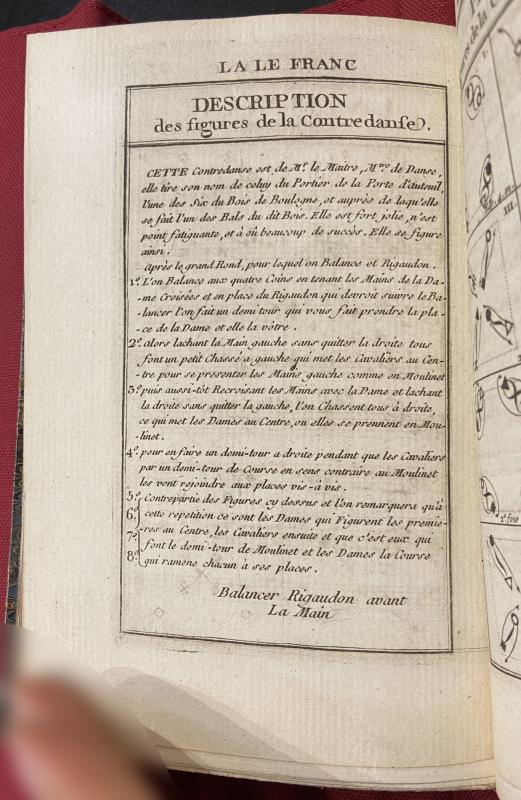 LA LE FRANC
DESCRIPTION
des figures de la Contredanse.
CETTE Contredanse est de Mr. le Maitre, Mtre de Danse,
elle tire son nom de celuy du Portier de la Porte d'auteuil,
l'une des Six du Bois de Boulogne, et auprès de laqu'elle
se fait l'un des Bals du dit Bois. Elle est fort jolie, n'est
point fatiguante, et à eû beaucoup de succès. Elle se figure
ainsi.
Après le grand Rond, pour lequel on Balance et Rigaudon.
1º. L'on Balance aux quatre Coins en tenant les Mains de la Da-
-me Croisées et en place du Rigaudon qui devroit suivre le Ba-
-lancer l'on fait un demi tour qui vous fait prendre la pla-
-ce de la Dame et elle la vôtre.
2º. alors lachant la Main gauche sans quitter la droite tous
font un petit Chassé a gauche qui met les Cavaliers au Cen-
-tre pour se presentar les Mains gauche comme en Moulinet
3º. puis aussi-tôt Recroisant les Mains avec la Dame et lachant
la droite sans quitter la gauche, l'on Chassent tous à droite,
ce qui met les Dames au Centre, ou elles se prennent en Mou-
-linet.
4º. pour en faire un demi-tour a droite pendant que les Cavaliers
par un demi-tour de Course en sens contraire au Moulinet
les vont rejoindre aux places vis-à vis.
5º. Contrepartie des Figures cy dessus et l'on remarquera qu'à
6º. cette repetition ce sont les Dames qui Figurent les premie-
7º. -res au Centre, les Cavaliers ensuite et que c'est eux qui
font le demi-tour de Moulinet et les Dames la Course
8º. qui ramene chacun à ses places.
Balancer Rigaudon avant
La Main
III.
2.e fois